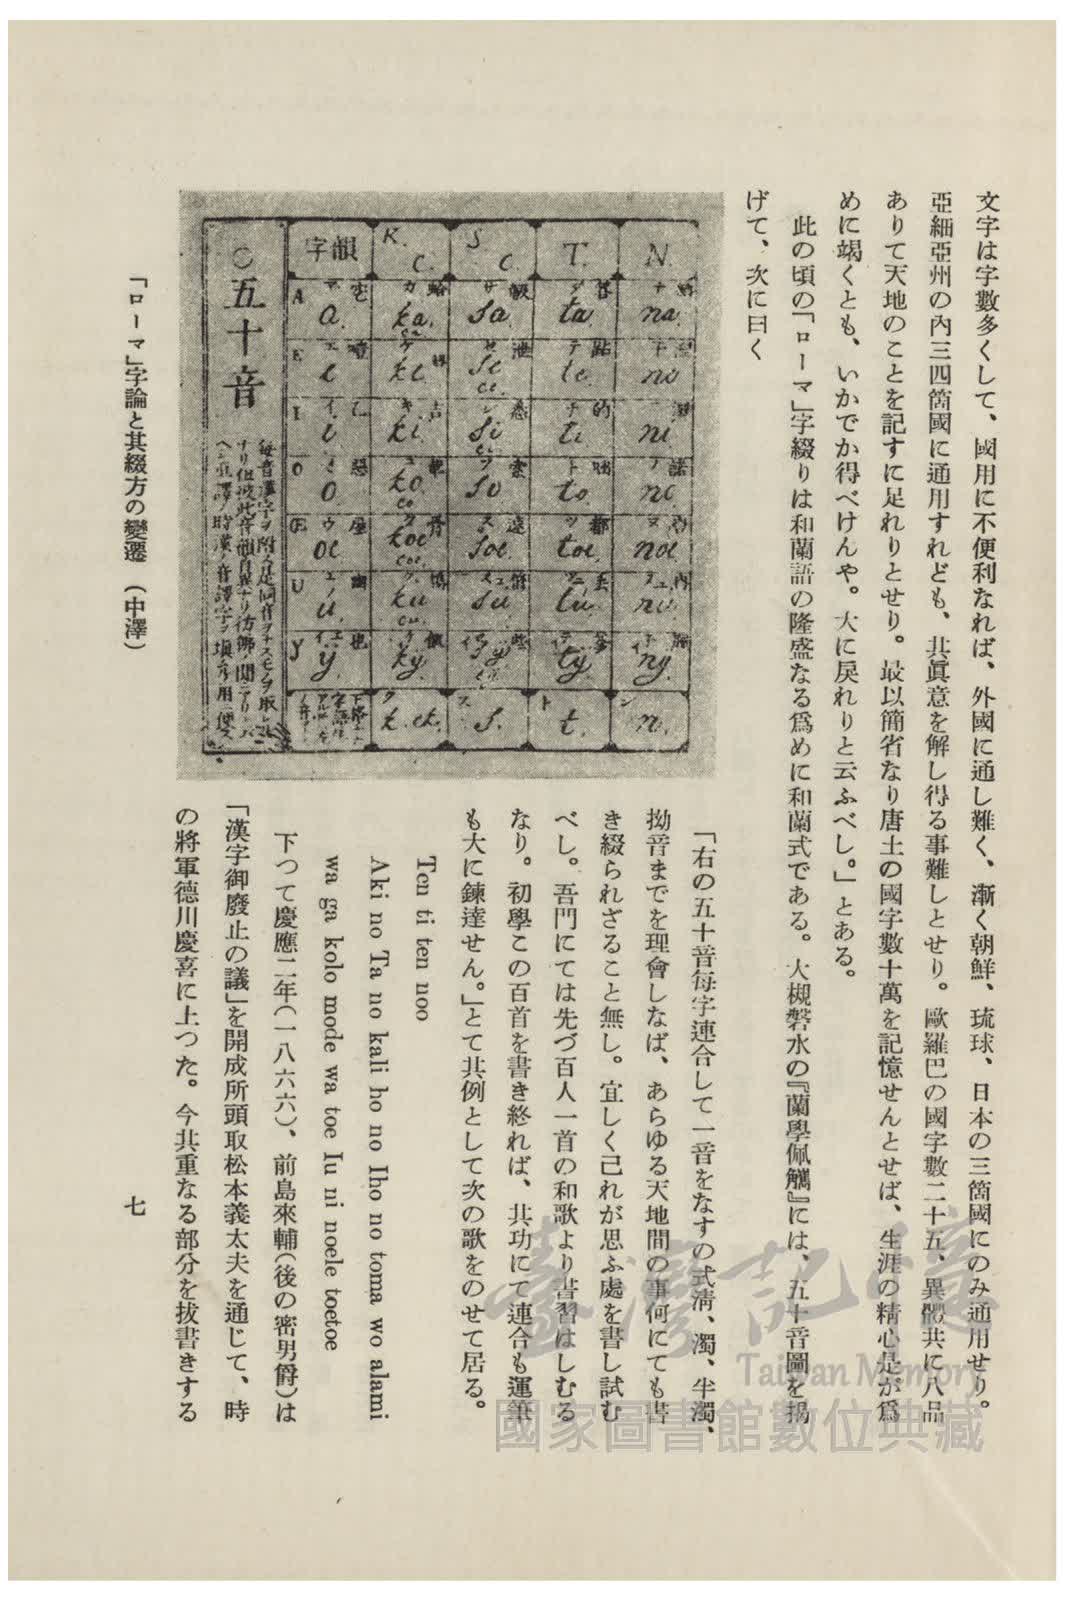 文字は字數多くして、國用に不便利なれば、外國に通し難く、漸く朝鮮、琉球、日本の三箇國にのみ通用せり。
亞細亞州の內三四箇國に通用すれども、其眞意を解し得る事難しとせり。歐羅巴の國字數二十五、異體共に八品
ありて天地のことを記すに足れりとせり。最以簡省なり唐土の國字數十萬を記憶せんとせば、生涯の精心是が爲
めに竭くとも、いかでか得べけんや。大に戾れりと云ふべし。」とある。
此の頃の「ローマ」字綴りは和蘭語の隆盛なる爲めに和蘭式である。大槻磐水の『蘭學佩觿』には、五十音圖を揭
げて、次に曰く
N. T. S C. K. C. 韻字
na. ta. sa. ka. a. A
te. ke. e E
ni. ti. si ki. i I
no. to. so ko. o. O
noe. toe. soe. koe. oe Œ
nu. tu. su. ku. u. U
ny. ty. ky. y. Y
n. t. s. k. ck.
○五十音
「右の五十音每字連合して一音をなすの式淸、濁、半濁、
拗音までを理會しなば、あらゆる天地間の事何にても書
き綴られざること無し。宜しく己れが思ふ處を書し試む
べし。吾門にては先づ百人一首の和歌より書習はしむる
なり。初學この百首を書き終れば、其功にて連合も運筆
も大に鍊達せん。」とて其例として次の歌をのせて居る。
Ten ti ten noo
Aki no Ta no kali ho no Iho no toma wo alami
wa ga kolo mode wa toe Iu ni noele toetoe
下つて慶應二年(一八六六)、前島來輔(後の密男爵)は
「漢字御廢止の議」を開成所頭取松本義太夫を通じて、時
の將軍德川慶喜に上つた。今其重なる部分を拔書きする
「ローマ」字論と其綴方の變遷 (中澤)
七
臺灣記憶
Taiwan Memory
國家圖書館數位典藏